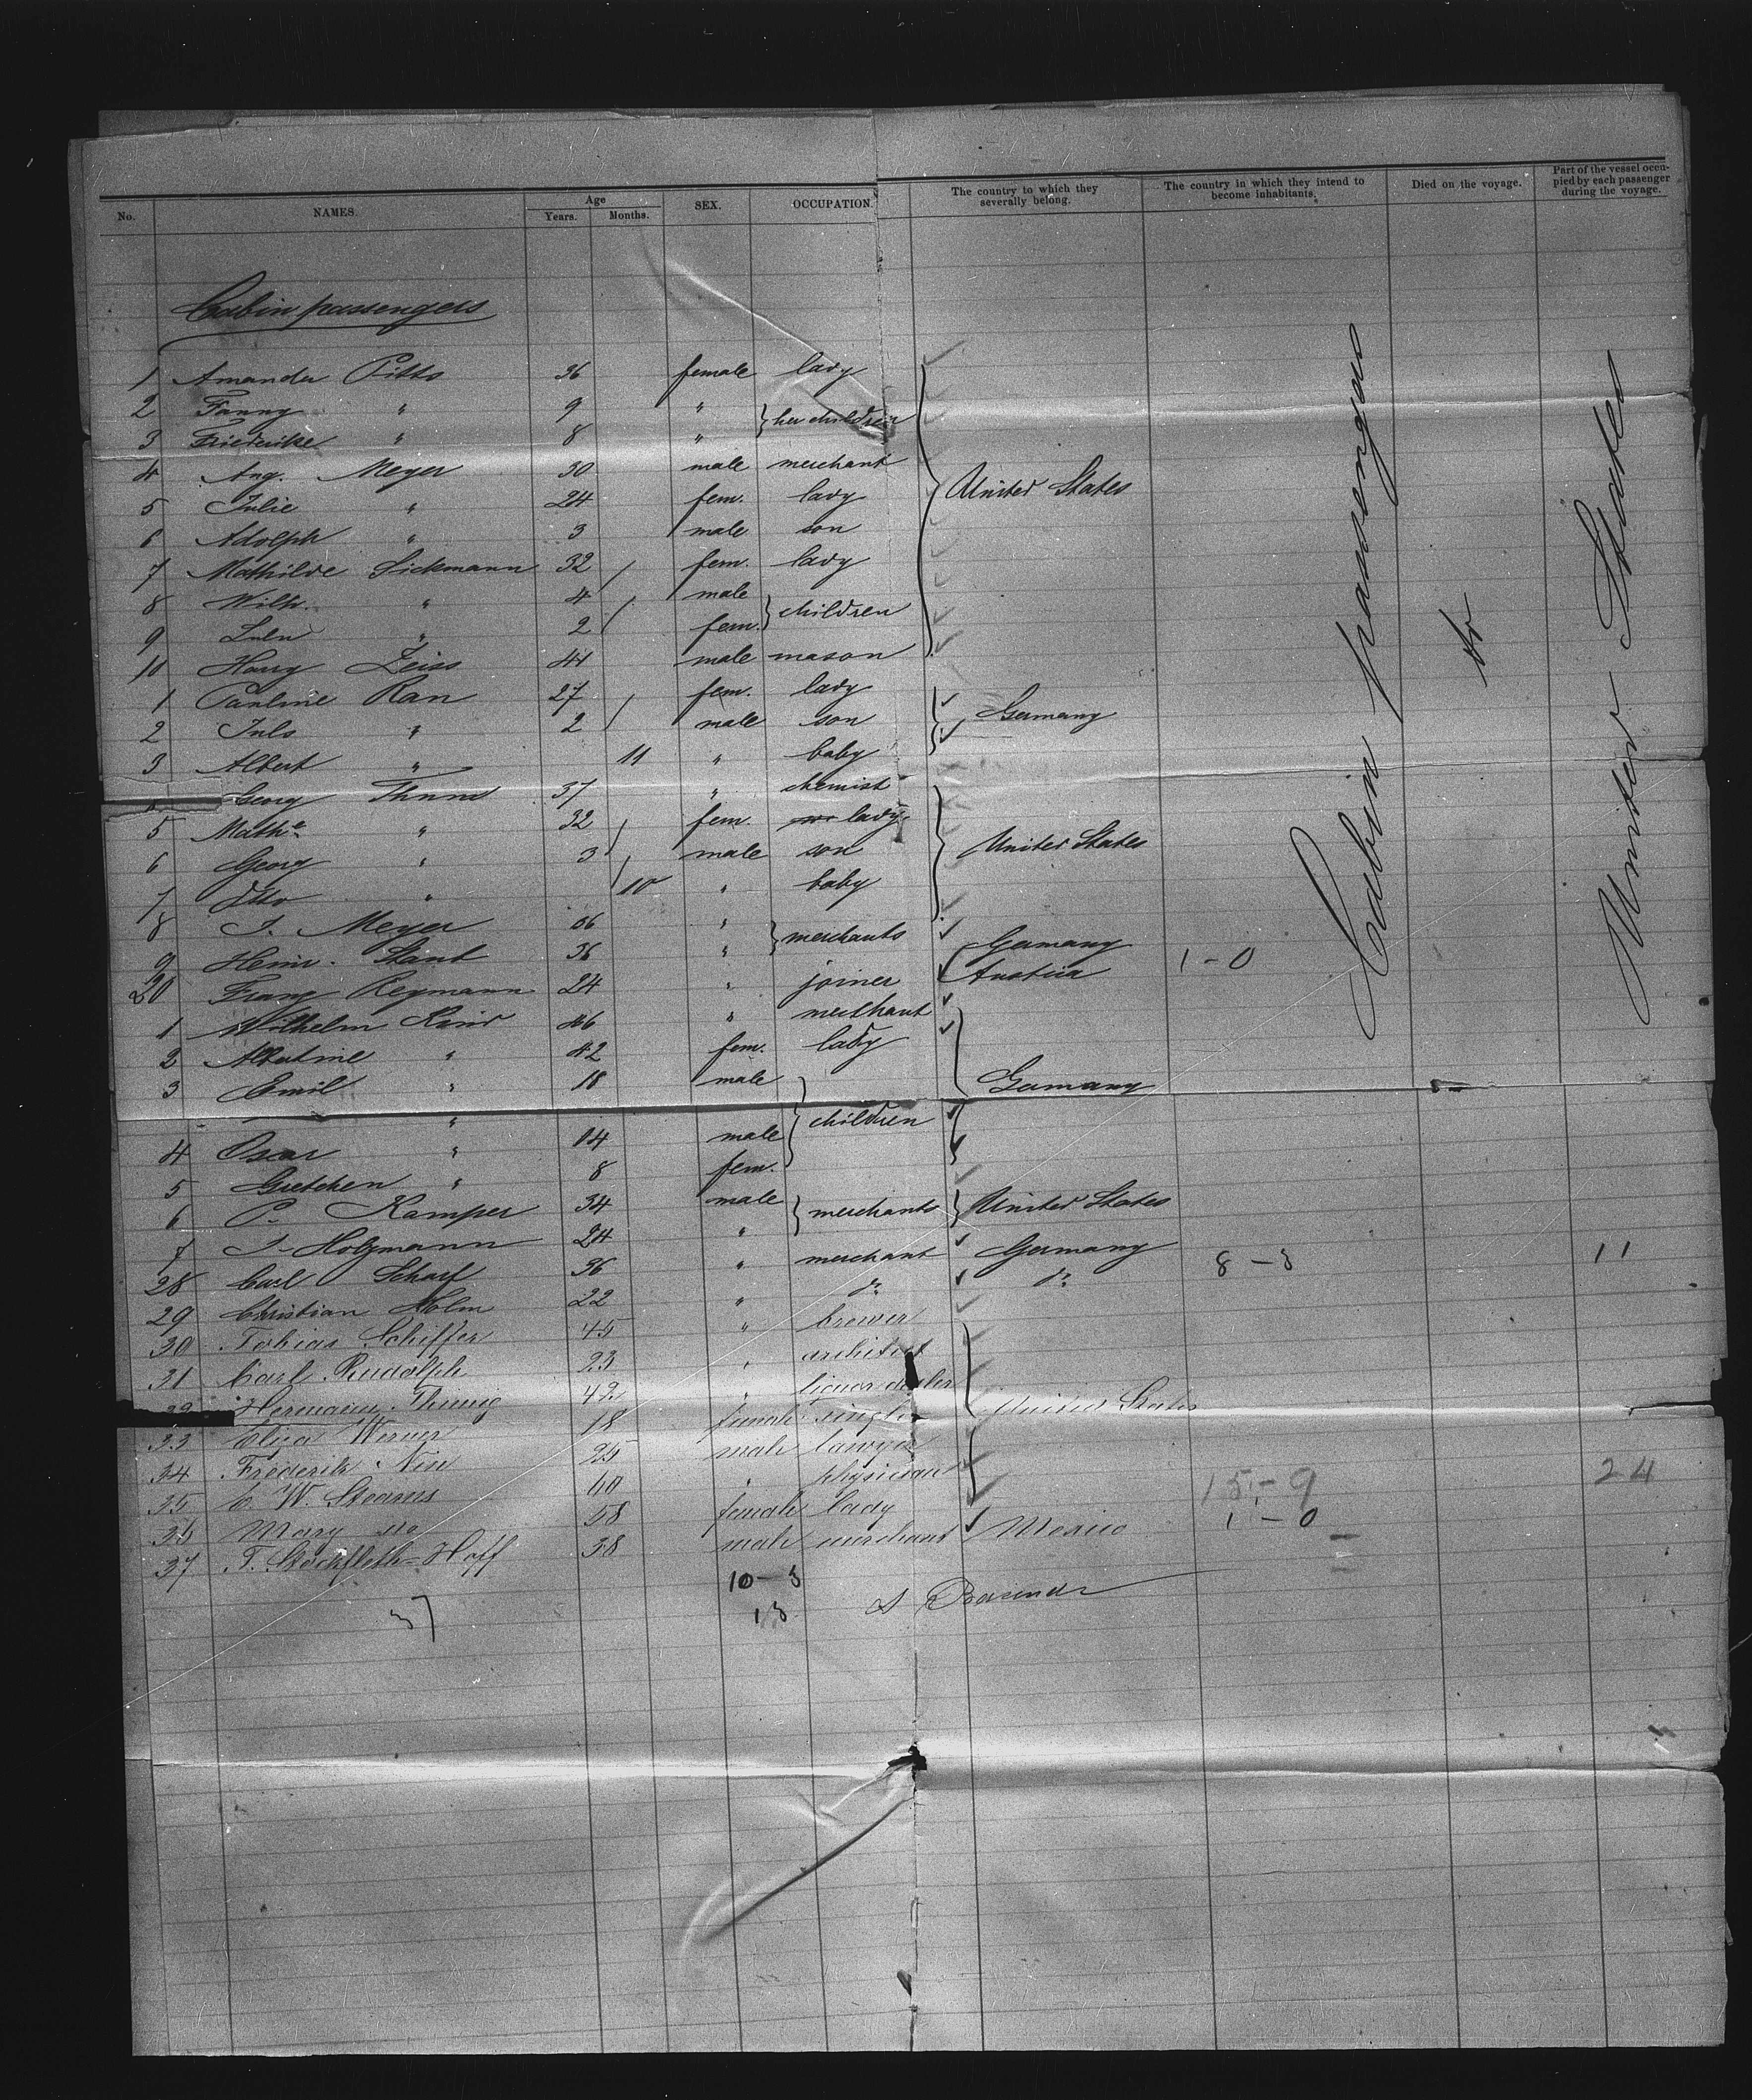 No. NAMES. Age Years. Months. SEX. OCCUPATION. The country to which they severally belong. The country in which they intend to become inhabitants. Died on the voyage. Part of the vessel occupied by each passenger during the voyage.
Cabin passengers
1 Amanda Pitts 36 female lady
2 Fanny " 9 " } her children
3 Friederike " 8 "
4 Aug. Meyer 30 male merchant
5 Julie " 24 fem. lady United States
6 Adolph " 3 male son
7 Mathilde Sickmann 32 fem. lady
8 Wilh. " 4 male } children
9 " 2 fem.
10 Harry Zeiss 41 male mason
1 Pauline Rau 27 fem. lady
2 Juls " 2 male son Germany
3 Albert " 11 " baby
Georg 37 " chemist
5 Mathe " 32 fem. lady
6 Georg " 3 male son United States
7 Otto " 10 " baby
8 J. Meyer " } merchants
9 Heinr. 36 " Germany
20 Franz Reymann 24 " joiner Austria 1 - 0
1 Wilhelm Kind 46 " merchant
2 Albertine " 42 fem. lady
3 Emil " 18 male Germany
" children
4 Oscar " 14 male
5 Gretchen " 8 fem.
6 P. Kamper 34 male } merchants United States
7 J. Holzmann 24 "
28 Carl Scharf 36 " merchant Germany 8 - 3 11
29 Christian Holm 22 " do do
30 Tobias Schiffer 45 " brewer
31 Carl Rudolph 23 " architect
32 Hermann 42 " liquor dealer
33 Elisa Werner 18 female single United States
34 Frederik 25 male lawyer
35 C. W. Stearns 60 " physician 15 - 9 24
36 Mary do 58 female lady 1 - 0
37 T. Stockfleth-Hoff 38 male merchant Mexico
10 - 3
37 13
Cabin passengers
to
United States